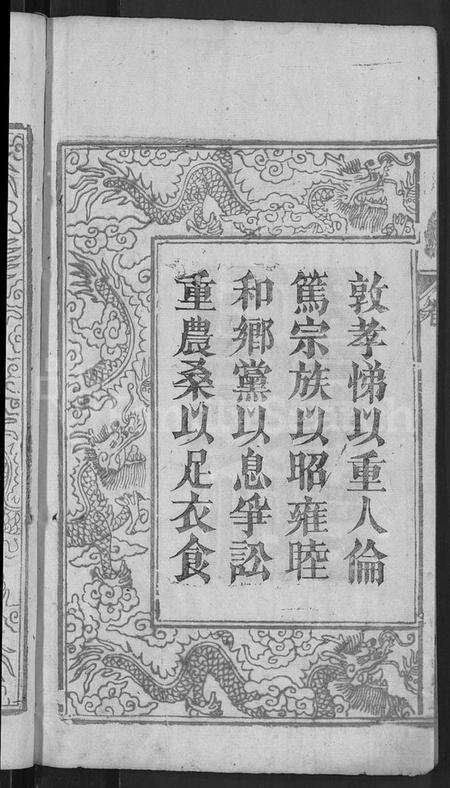 敦孝悌以重人倫
篤宗族以昭雍睦
和鄉黨以息爭訟
重農桑以足衣食